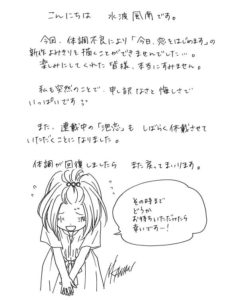 こんにちは 水波風南です。
今回、体調不良により「今日、恋をはじめます」の
新作よみきりを描くことができませんでした…。
楽しみにしてくれた皆様、本当にすみません。
私も突然のことで、申し訳なさと悔しさで
いっぱいです
また、連載中の「泡恋」もしばらく休載させて
いただくことになりました。
体調が回復しましたら また戻ってまいります。
その時まで
どうか
お待ちいただけたら
幸いですー!